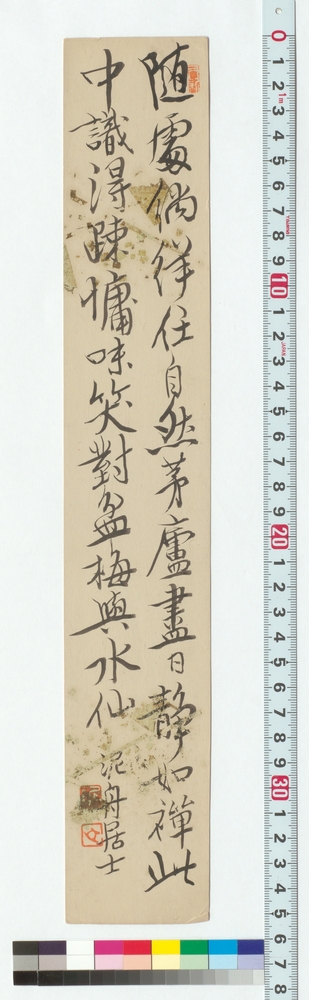 随處倘徉任自然茅廬盡日静如禅此
中識得踈慵味笑對盆梅與水仙
泥舟居士
0 1 2 3 4 5 6 7 8 9 10 1 2 3 4 5 6 7 8 9 20 1 2 3 4 5 6 7 8 9 30 1 2 3 4 5 6 7 8